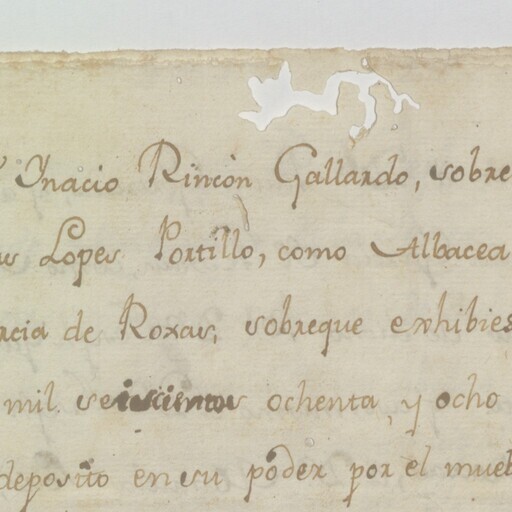 Ynacio Rincòn Gallardo, sobre
Lopes Portillo, como Albacea
rcia de Roxas, sobreque exhibies
mil seiscientos ochenta, y ocho
deposito en su poder por el muel